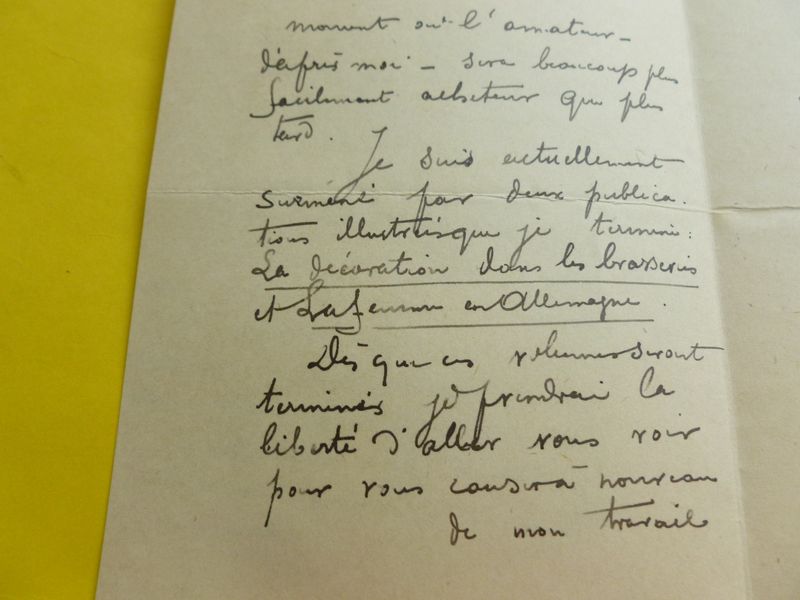 moment où l'amateur -
d'après moi - sera beaucoup plus
facilement acheteur que plus
tard.
Je suis actuellement
surmené par deux publica-
tions illustrées que je termine :
La décoration dans les brasseries
et La femme en Allemagne.
Dès que ces volumes seront
terminés je prendrai la
liberté d'aller vous voir
pour vous causer à nouveau
de mon travail